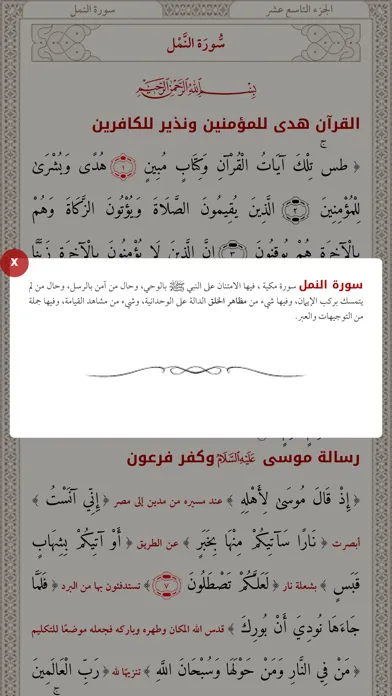 الجزء التاسع عشر
سورة النمل
سُورَة النَّمْل
بِسْمِ اللَّهِ الرَّحْمَٰنِ الرَّحِيمِ
القرآن هدى للمؤمنين ونذير للكافرين
﴿ طسٓ ۚ تِلْكَ آيَاتُ الْقُرْآنِ وَكِتَابٍ مُبِينٍ ١ هُدًى وَبُشْرَىٰ
لِلْمُؤْمِنِينَ ٢ الَّذِينَ يُقِيمُونَ الصَّلَاةَ وَيُؤْتُونَ الزَّكَاةَ وَهُمْ
بِالْآخِرَةِ هُمْ يُوقِنُونَ ٣ إِنَّ الَّذِينَ لَا يُؤْمِنُونَ بِالْآخِرَةِ زَيَّنَّا
X
سورة النمل سورة مكية ، فيها الامتنان على النبي ﷺ بالوحي، وحال من آمن بالرسل، وحال من لم
يتمسك بركب الإيمان، وفيها شيء من مظاهر الخلق الدالة على الوحدانية، وشيء من مشاهد القيامة، وفيها جملة
من التوجيهات والعبر.
رسالة موسى عَلَيْهِ السَّلَامُ وكفر فرعون
﴿ إِذْ قَالَ مُوسَىٰ لِأَهْلِهِ ﴾ عند مسيره من مدين إلى مصر ﴿ إِنِّي آنَسْتُ ﴾
أبصرت ﴿ نَارًا سَآتِيكُمْ مِنْهَا بِخَبَرٍ ﴾ عن الطريق ﴿ أَوْ آتِيكُمْ بِشِهَابٍ
قَبَسٍ ﴾ بشعلة نار ﴿ لَعَلَّكُمْ تَصْطَلُونَ ٧ ﴾ تستدفئون بها من البرد ﴿ فَلَمَّا
جَاءَهَا نُودِيَ أَنْ بُورِكَ ﴾ قدس الله المكان وطهره وباركه فجعله موضعًا للتكليم
﴿ مَنْ فِي النَّارِ وَمَنْ حَوْلَهَا وَسُبْحَانَ اللَّهِ ﴾ تنزيهًا لله ﴿ رَبِّ الْعَالَمِينَ